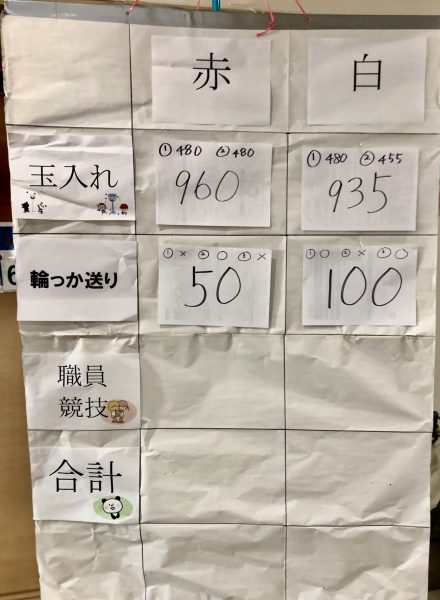 赤 白
玉入れ
①480 ②480
960
①480 ②455
935
輪っか送り
①× ②○ ③×
50
①○ ②× ③○
100
職員
競技
合計
6